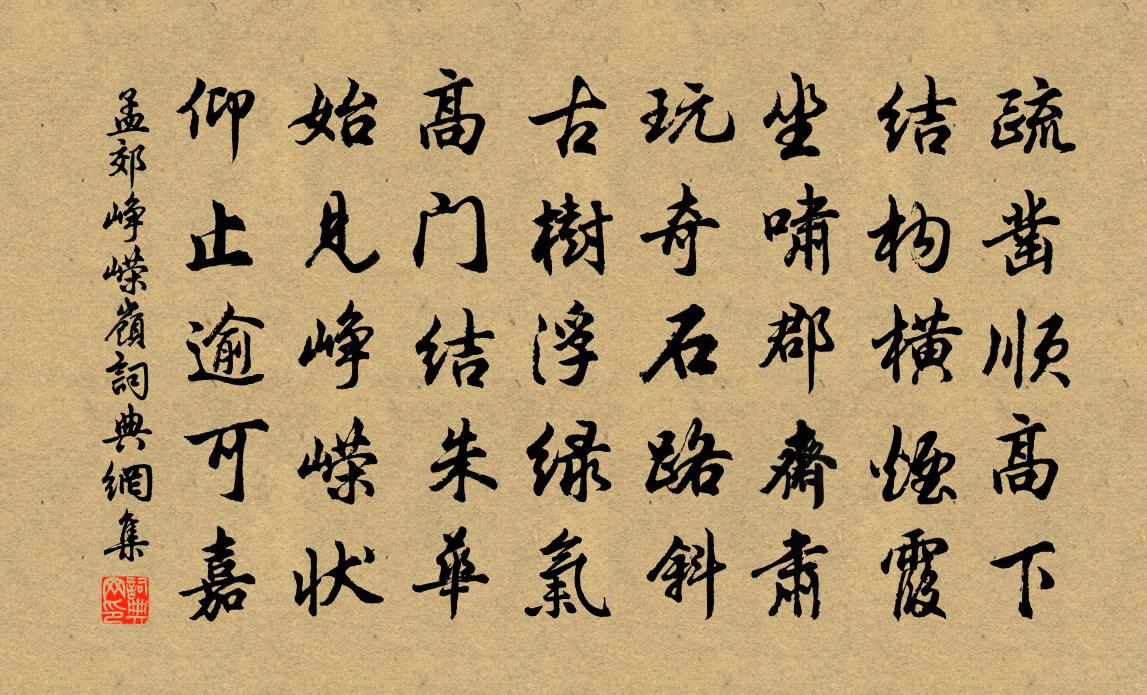 疏凿顺高下
结构横烟霞
坐啸郡斋肃
玩奇石路斜
古樹浮绿氣
高门结朱華
始見峥嵘状
仰止逾可嘉
孟郊峥嵘嶺詞典網集
詞典网印